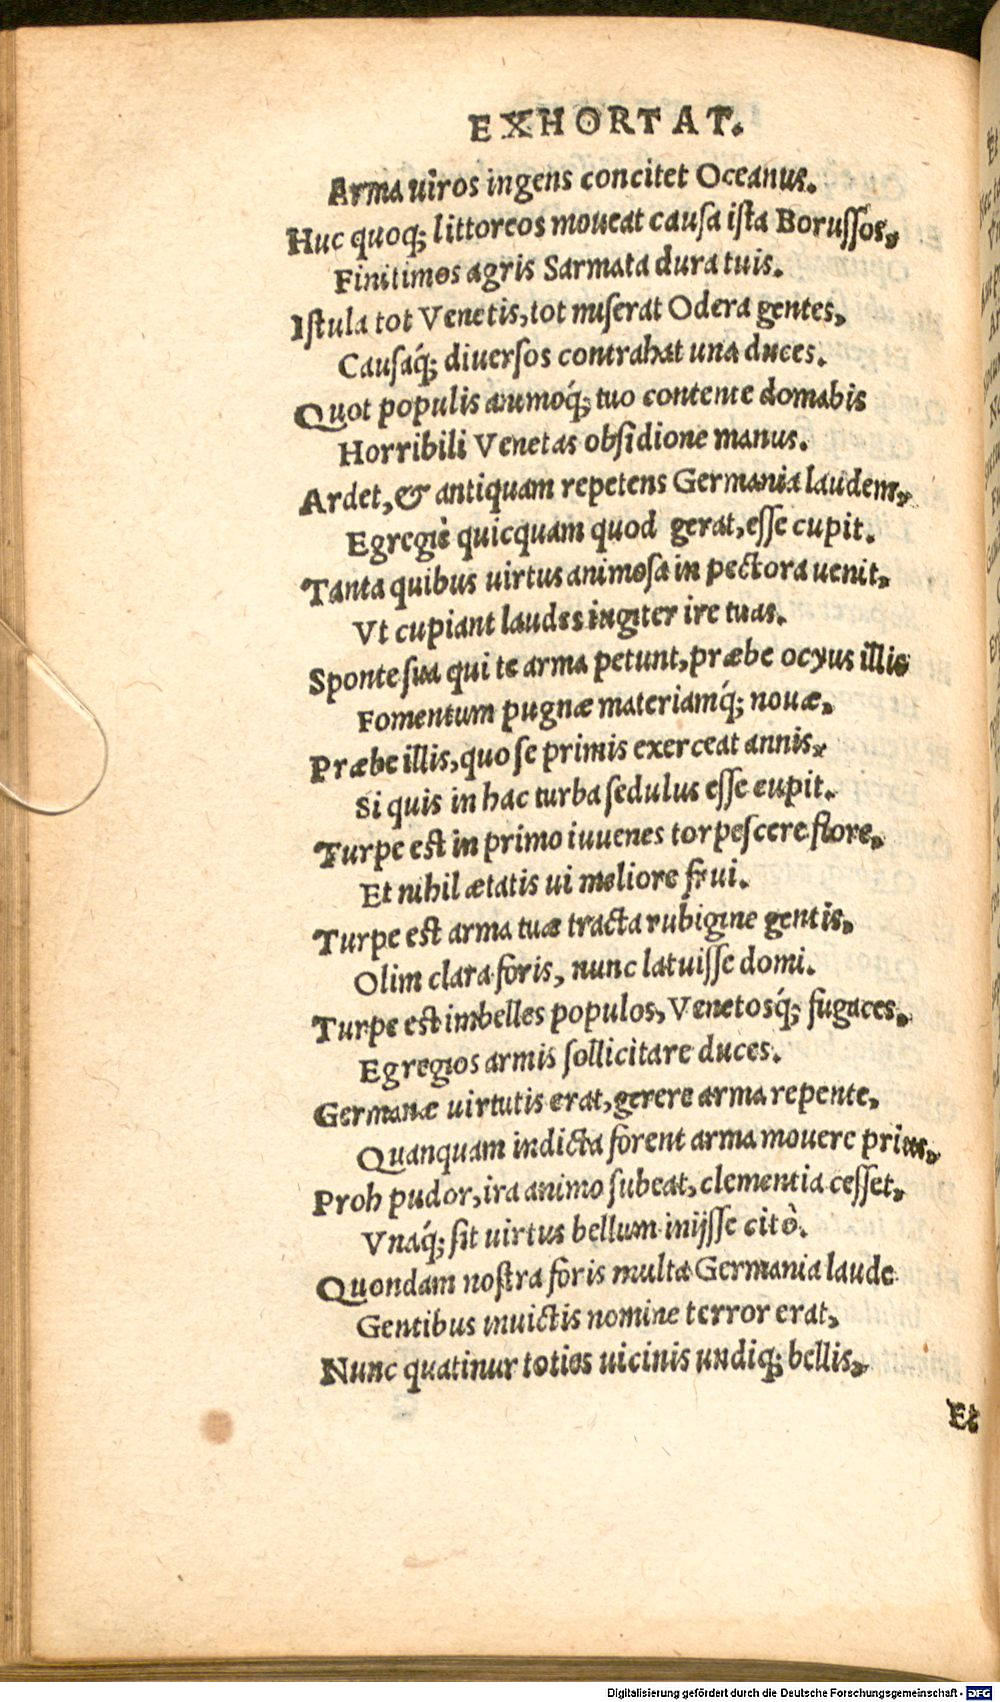 EXHORTAT.
Arma uiros ingens concitet Oceanus.
Huc quoq; littoreos moueat causa ista Borussos,
Finitimos agris Sarmata dura tuis.
Istula tot Venetis, tot miserat Odera gentes,
Causaq́; diuersos contrahat una duces.
Quot populis animoq́; tuo contente domabis
Horribili Venetas obsidione manus.
Ardet, & antiquam repetens Germania laudem,
Egregiè quicquam quod gerat, esse cupit.
Tanta quibus uirtus animosa in pectora uenit,
Vt cupiant laudes ingiter ire tuas.
Sponte sua qui te arma petunt, præbe ocyus illis
Fomentum pugnæ materiamq́; nouæ.
Præbe illis, quo se primis exerceat annis,
Si quis in hac turba sedulus esse eupit.
Turpe est in primo iuuenes torpescere flore,
Et nihil ætatis ui meliore frui.
Turpe est arma tuæ tracta rubigine gentis,
Olim clara foris, nunc latuisse domi.
Turpe est imbelles populos, Venetosq́; fugaces,
Egregios armis sollicitare duces.
Germanæ uirtutis erat, gerere arma repente,
Quanquam indicta forent arma mouere prius,
Proh pudor, ira animo subeat, clementia cesset,
Vnaq́; sit uirtus bellum inijsse citò.
Quondam nostra foris multa Germania laude
Gentibus inuictis nomine terror erat,
Nunc quatinur toties uicinis undiq; bellis,
Et
Digitalisierung gefördert durch die Deutsche Forschungsgemeinschaft - DFG